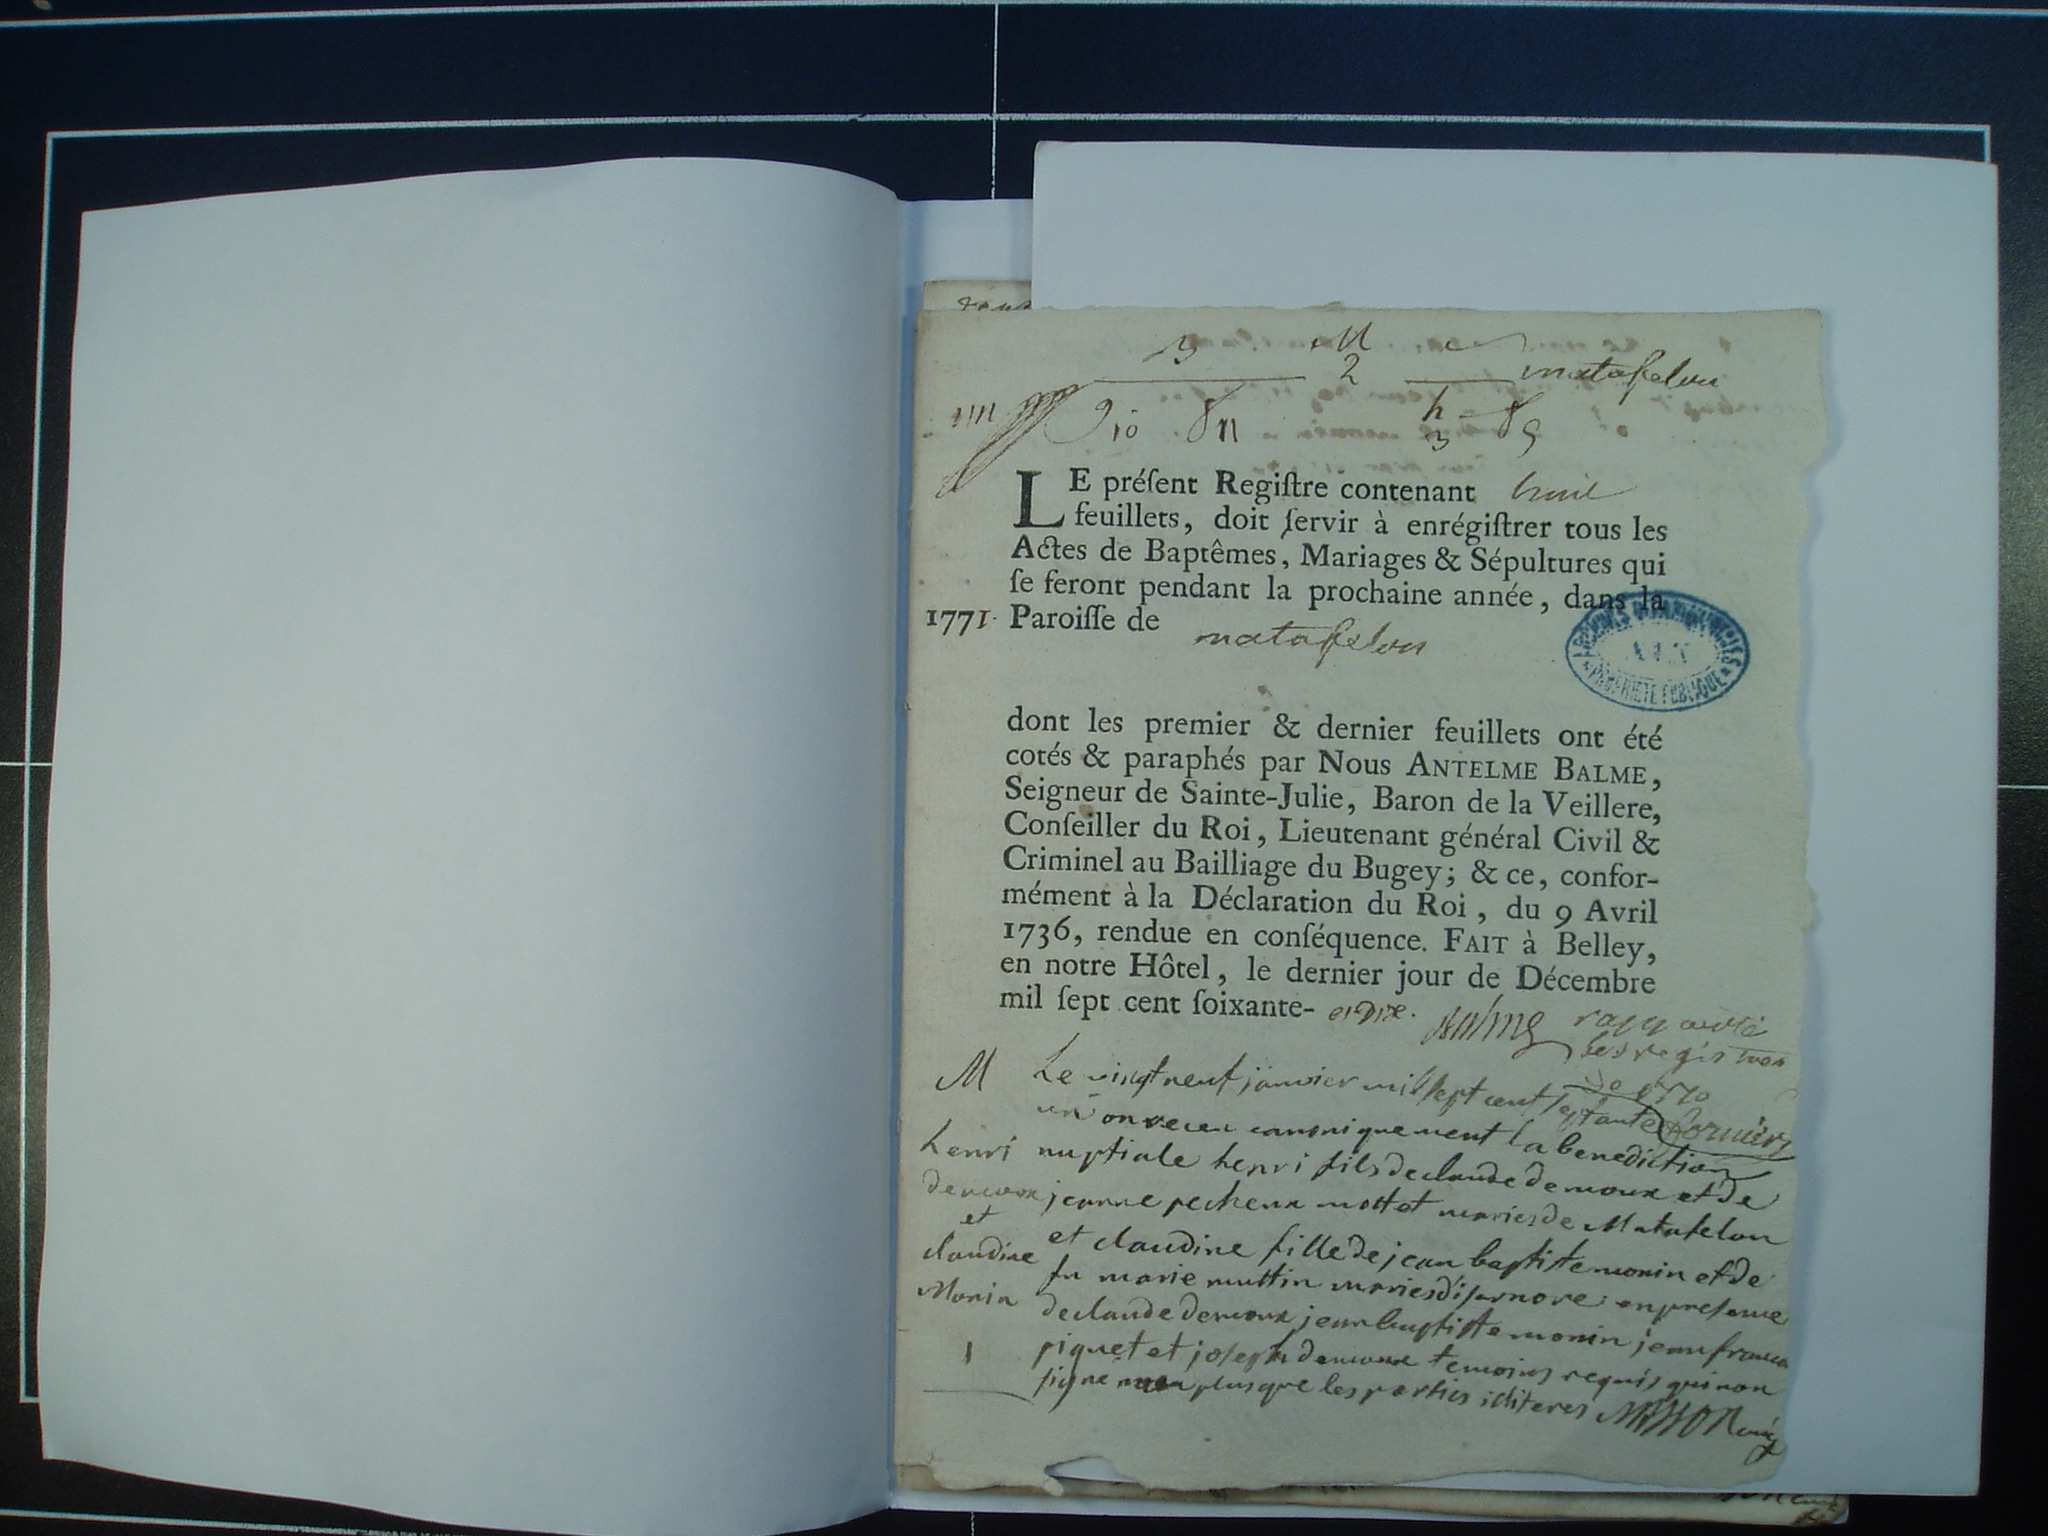 3 M
2 matafelon
9 10 8 11 h 3 8 9
LE préſent Regiſtre contenant huit
feuillets, doit ſervir à enrégiſtrer tous les
Actes de Baptêmes, Mariages & Sépultures qui
ſe feront pendant la prochaine année, dans la
1771. Paroiſſe de matafelon
ARCHIVES DÉPARTEMENTALES
AIN
PROPRIÉTÉ PUBLIQUE
dont les premier & dernier feuillets ont été
cotés & paraphés par Nous ANTELME BALME,
Seigneur de Sainte-Julie, Baron de la Veillere,
Conſeiller du Roi, Lieutenant général Civil &
Criminel au Bailliage du Bugey; & ce, confor-
mément à la Déclaration du Roi, du 9 Avril
1736, rendue en conſéquence. FAIT à Belley,
en notre Hôtel, le dernier jour de Décembre
mil ſept cent ſoixante- et dix. Balme
rapporté
les registres
de 1770
M
henri
demoux
et
claudine
Monin
1
Le vingt neuf janvier mil sept cent septante
un on receu canoniquement la benediction
nuptiale henri fils de claude demoux et de
jeanne pecheux mottet mariés de Matafelon
et claudine fille de jean baptiste monin et de
fu marie muttin mariés disernore en presence
de claude demoux jean baptiste monin jean francois
piquet et joseph demoux temoins requis qui non
signé non plus que les parties illiteres